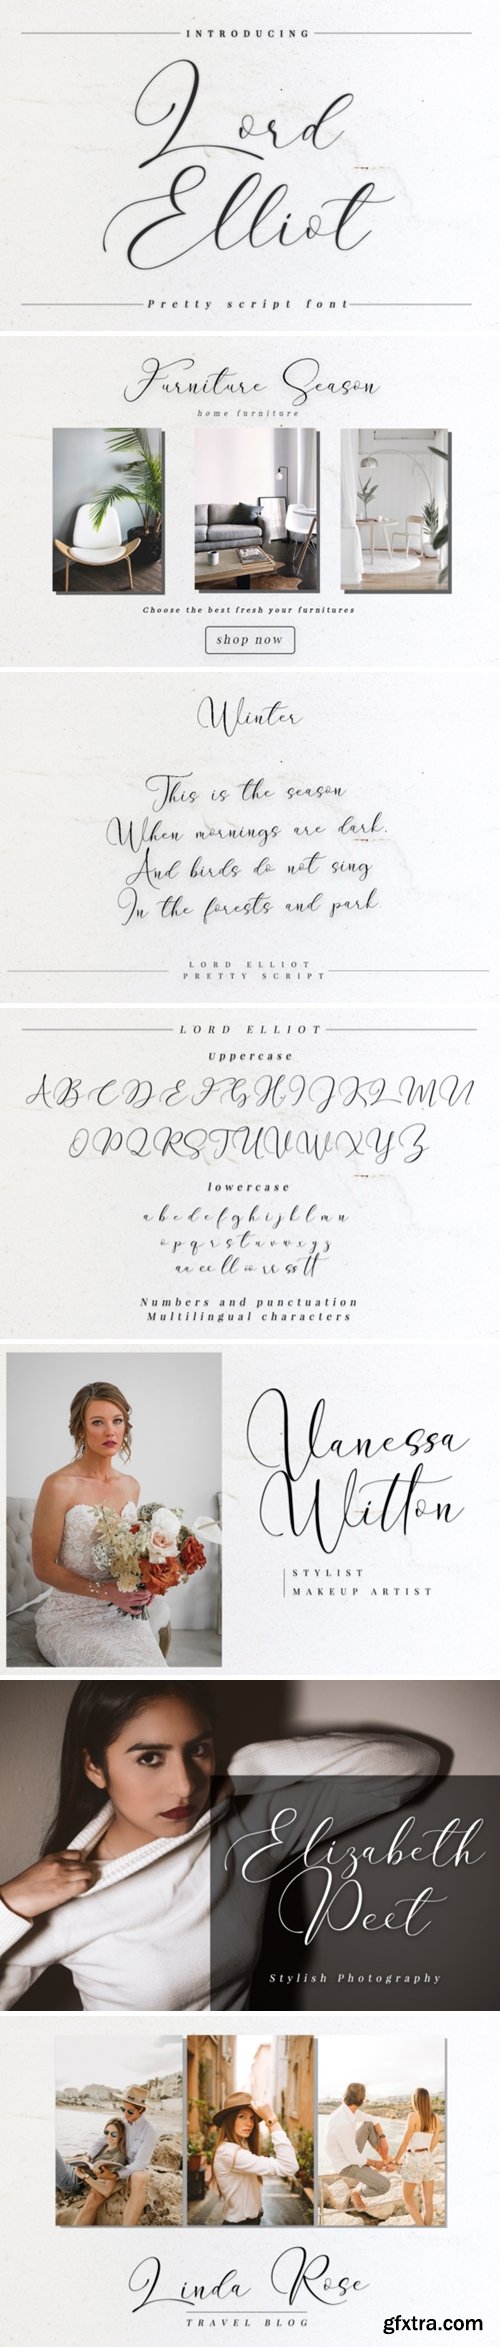 INTRODUCING
Lord
Elliot
Pretty script font
Furniture Season
home furniture
Choose the best fresh your furnitures
shop now
Winter
This is the season
When mornings are dark,
And birds do not sing
In the forests and park
LORD ELLIOT
PRETTY SCRIPT
LORD ELLIOT
Uppercase
A B C D E F G H I J K L M N
O P Q R S T U V W X Y Z
lowercase
a b c d e f g h i j k l m n
o p q r s t u v w x y z
aa ee ll oo rr ss tt
Numbers and punctuation
Multilingual characters
Vanessa
Witton
STYLIST
MAKEUP ARTIST
Elizabeth
Peet
Stylish Photography
Linda Rose
TRAVEL BLOG
gfxtra.com